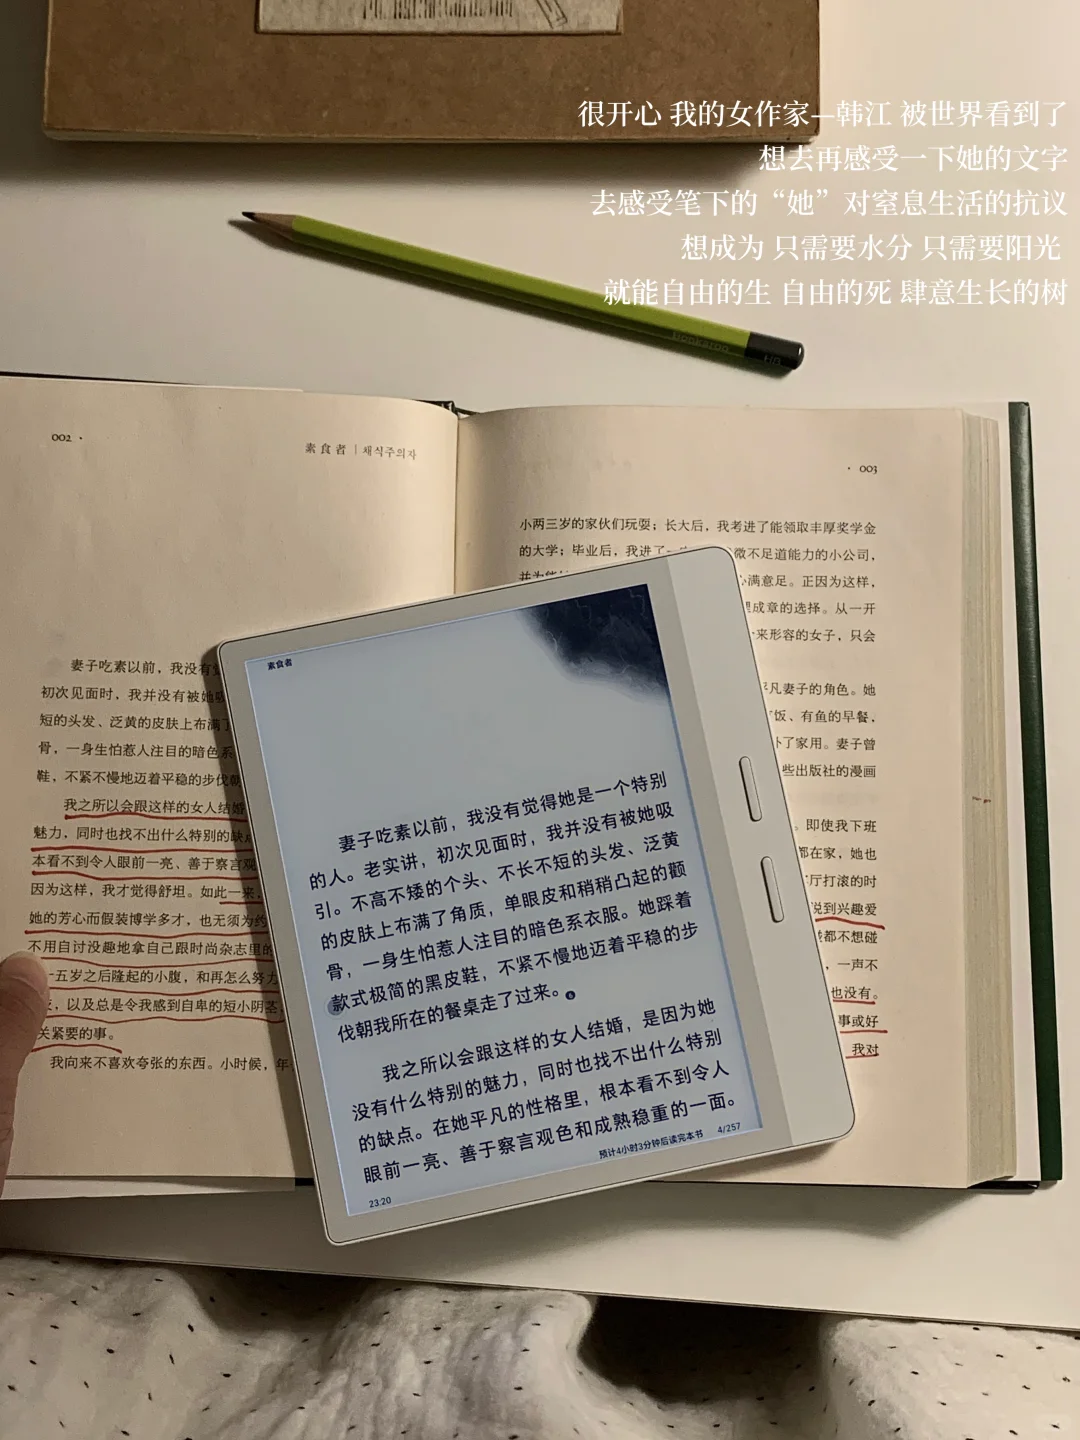 很开心 我的女作家—韩江 被世界看到了
想去再感受一下她的文字
去感受笔下的“她”对窒息生活的抗议
想成为 只需要水分 只需要阳光
就能自由的生 自由的死 肆意生长的树
Honkaron HB
002 ·
素食者 | 채식주의자
妻子吃素以前，我没有
初次见面时，我并没有被她
短的头发、泛黄的皮肤上布满了
骨，一身生怕惹人注目的暗色系
鞋，不紧不慢地迈着平稳的步伐
我之所以会跟这样的女人结婚
魅力，同时也找不出什么特别的缺
本看不到令人眼前一亮、善于察言观
因为这样，我才觉得舒坦。如此一来，
她的芳心而假装博学多才，也无须为约
不用自讨没趣地拿自己跟时尚杂志里的
十五岁之后隆起的小腹，和再怎么努力
以及总是令我感到自卑的短小阴茎
关紧要的事。
我向来不喜欢夸张的东西。小时候，年
· 003
小两三岁的家伙们玩耍；长大后，我考进了能领取丰厚奖学金
的大学；毕业后，我进了一
微不足道能力的小公司，
心满意足。正因为这样，
理成章的选择。从一开
来形容的女子，只会
平凡妻子的角色。她
饭、有鱼的早餐，
补了家用。妻子曾
些出版社的漫画
。即使我下班
都在家，她也
客厅打滚的时
说到兴趣爱
都不想碰
，一声不
也没有。
事或好
我对
素食者
妻子吃素以前，我没有觉得她是一个特别
的人。老实讲，初次见面时，我并没有被她吸
引。不高不矮的个头、不长不短的头发、泛黄
的皮肤上布满了角质，单眼皮和稍稍凸起的颧
骨，一身生怕惹人注目的暗色系衣服。她踩着
款式极简的黑皮鞋，不紧不慢地迈着平稳的步
伐朝我所在的餐桌走了过来。
我之所以会跟这样的女人结婚，是因为她
没有什么特别的魅力，同时也找不出什么特别
的缺点。在她平凡的性格里，根本看不到令人
眼前一亮、善于察言观色和成熟稳重的一面。
23:20
预计4小时3分钟后读完本书 4/257